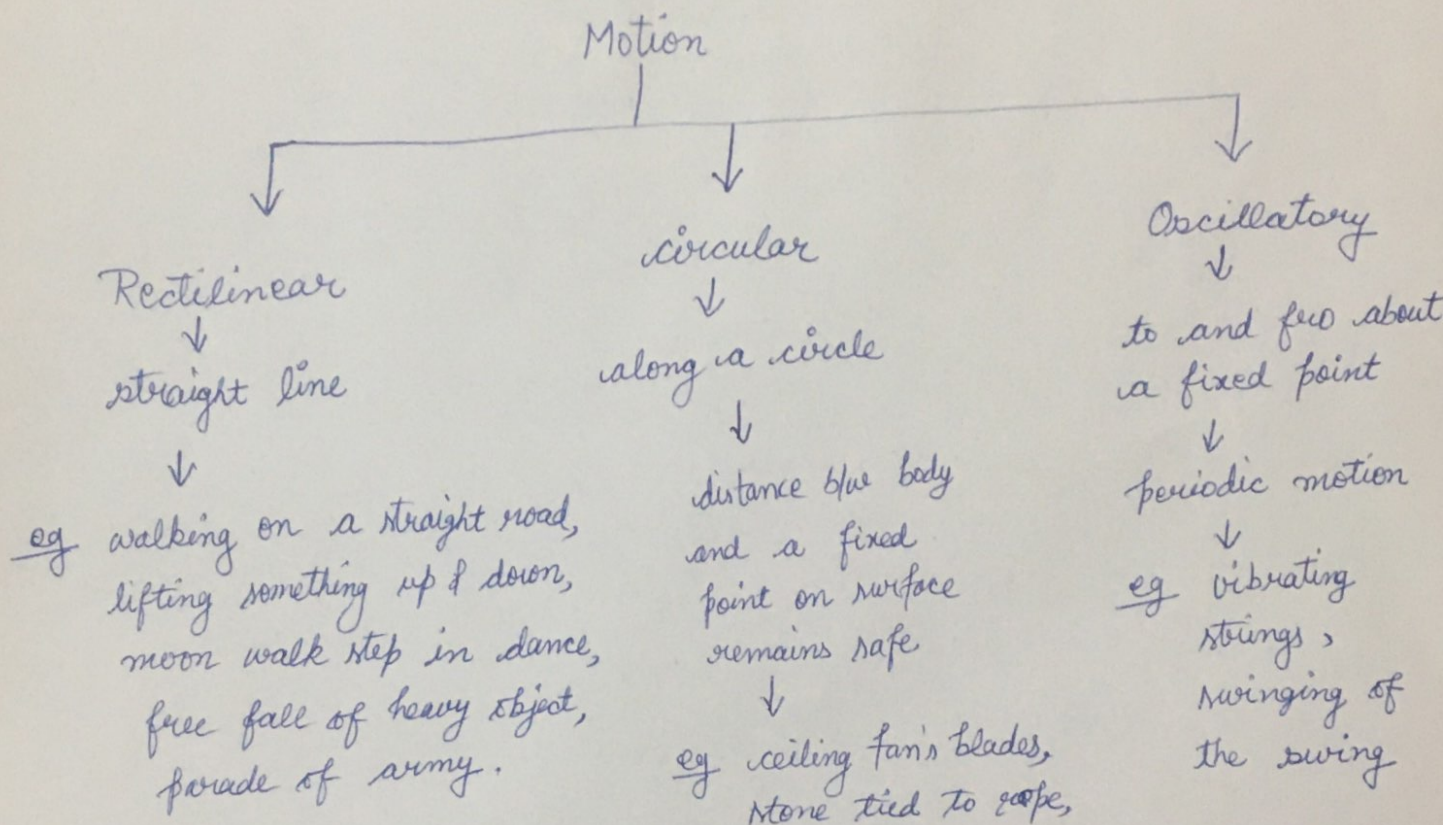 Motion
Rectilinear
straight line
eg walking on a straight road,
lifting something up & down,
moon walk step in dance,
free fall of heavy object,
parade of army.
circular
along a circle
distance b/w body
and a fixed
point on surface
remains safe
eg ceiling fan's blades,
stone tied to rope,
Oscillatory
to and fro about
a fixed point
periodic motion
eg vibrating
strings,
swinging of
the swing